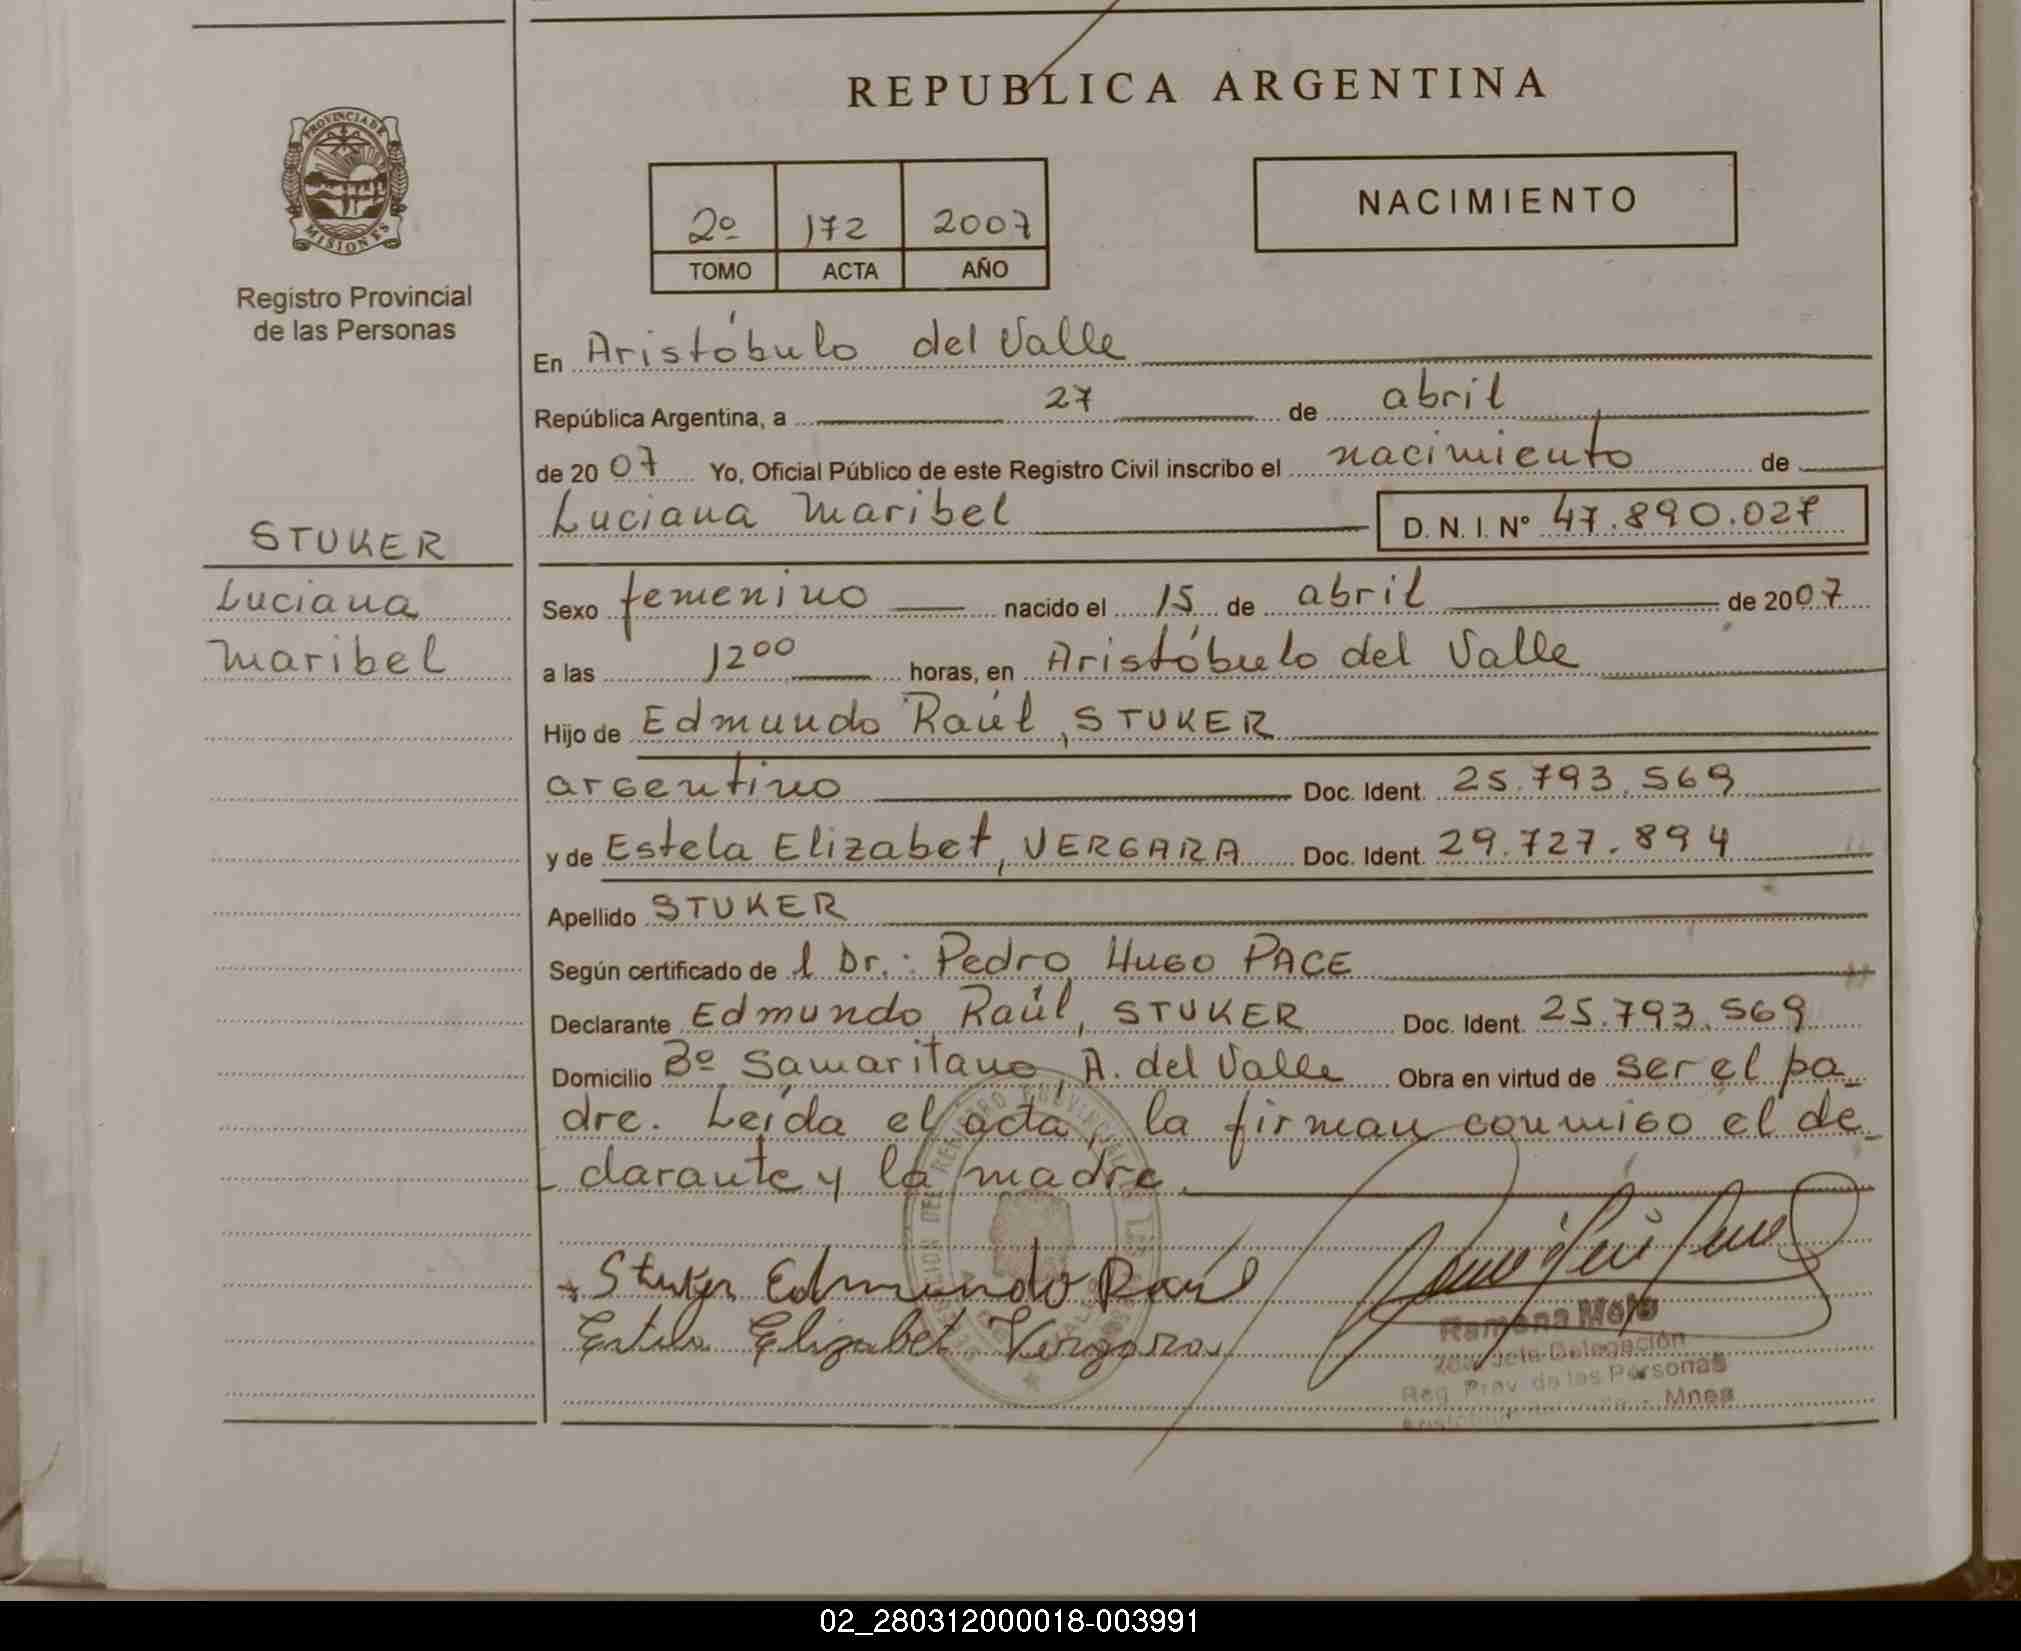 REPUBLICA ARGENTINA
PROVINCIA DE
MISIONES
Registro Provincial
de las Personas
2º 172 2007
TOMO ACTA AÑO
NACIMIENTO
En Aristóbulo del Valle
República Argentina, a 27 de abril
de 2007 Yo, Oficial Público de este Registro Civil inscribo el nacimiento de
STUKER
Luciana
Maribel
Luciana Maribel D. N. I. Nº 47.890.027
Sexo femenino nacido el 15 de abril de 2007
a las 12⁰⁰ horas, en Aristóbulo del Valle
Hijo de Edmundo Raúl, STUKER
argentino Doc. Ident. 25.793.569
y de Estela Elizabet, VERGARA Doc. Ident. 29.727.894
Apellido STUKER
Según certificado de l Dr.: Pedro Hugo PACE
Declarante Edmundo Raúl, STUKER Doc. Ident. 25.793.569
Domicilio Bº Samaritano, A. del Valle Obra en virtud de ser el pa_
dre. Leída el acta, la firman conmigo el de_
clarante y la madre.
Stuker Edmundo Raúl
Estela Elizabet Vergara
Ramona Melo
Jefe Delegación
Reg. Prov. de las Personas
Mnes
02_280312000018-003991